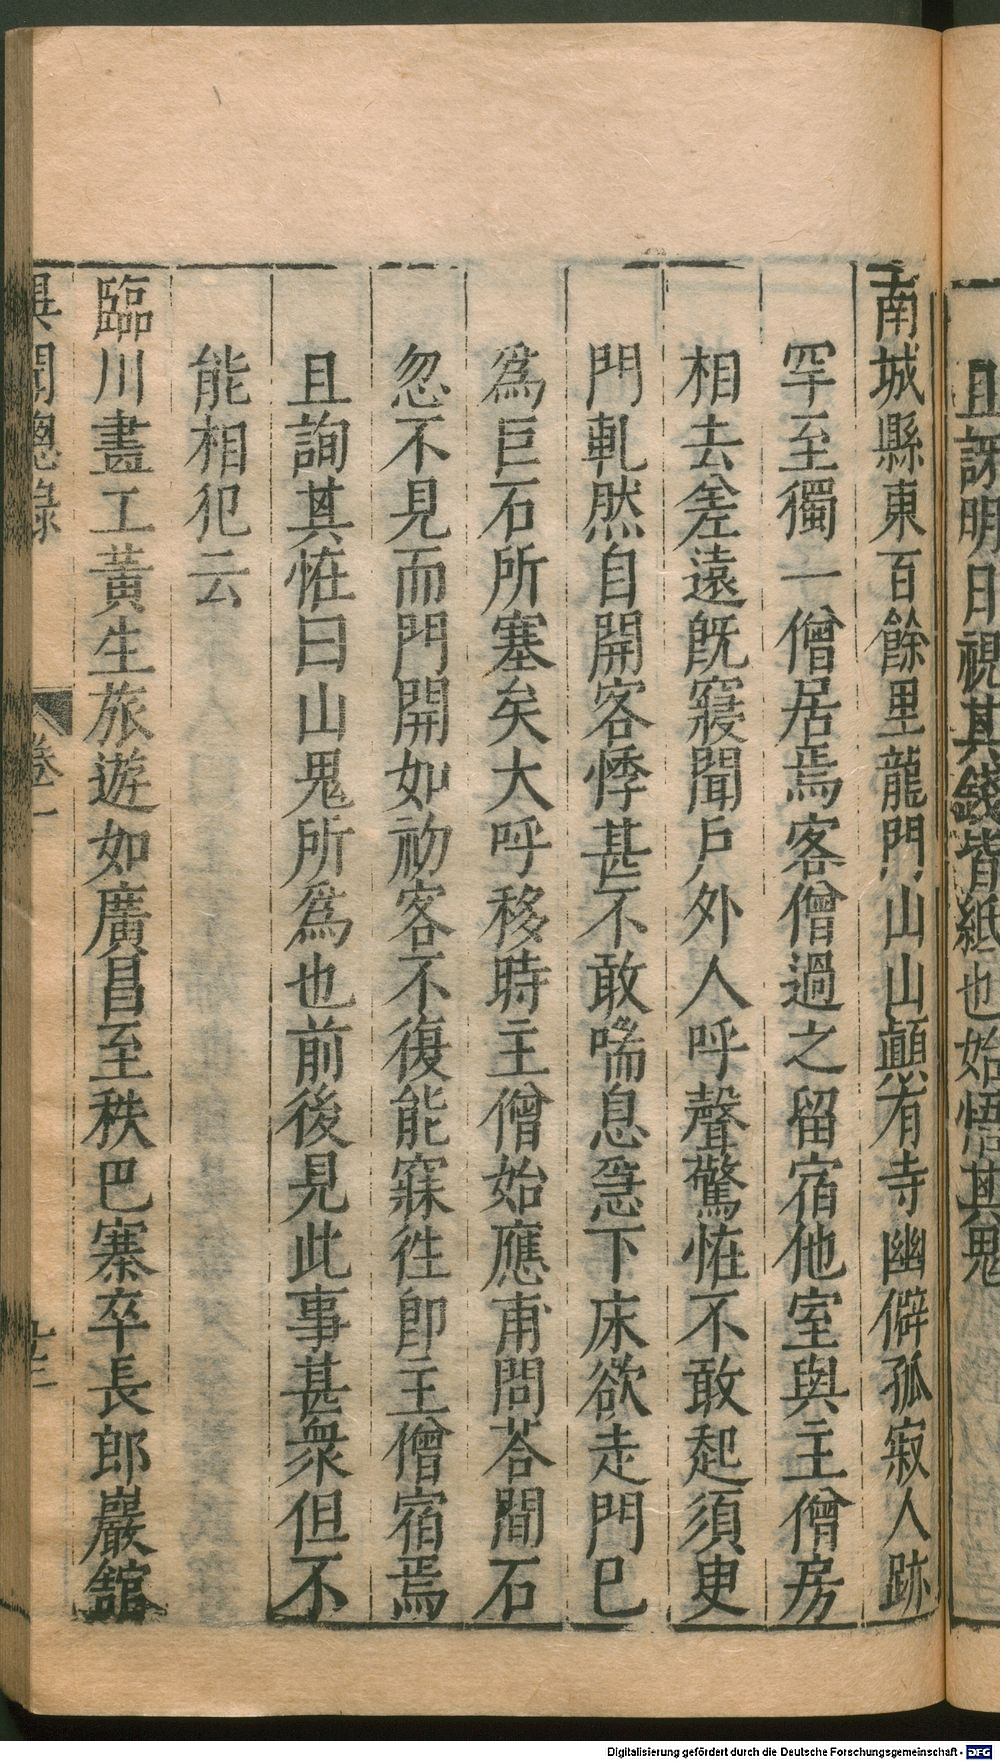 且訝明日視其錢皆紙也始悟其鬼
南城縣東百餘里龍門山山顛有寺幽僻孤寂人跡
罕至獨一僧居焉客僧過之留宿他室與主僧房
相去差遠既寢聞戶外人呼聲驚恠不敢起須叟
門軋然自開客悸甚不敢喘息急下床欲走門已
爲巨石所塞矣大呼移時主僧始應甫問荅間石
忽不見而門開如初客不復能寐徃卽主僧宿焉
且詢其恠曰山鬼所爲也前後見此事甚衆但不
能相犯云
臨川畫工黃生旅遊如廣昌至秩巴寨卒長郎巖舘
異聞總錄 卷一 十三
Digitalisierung gefördert durch die Deutsche Forschungsgemeinschaft - DFG